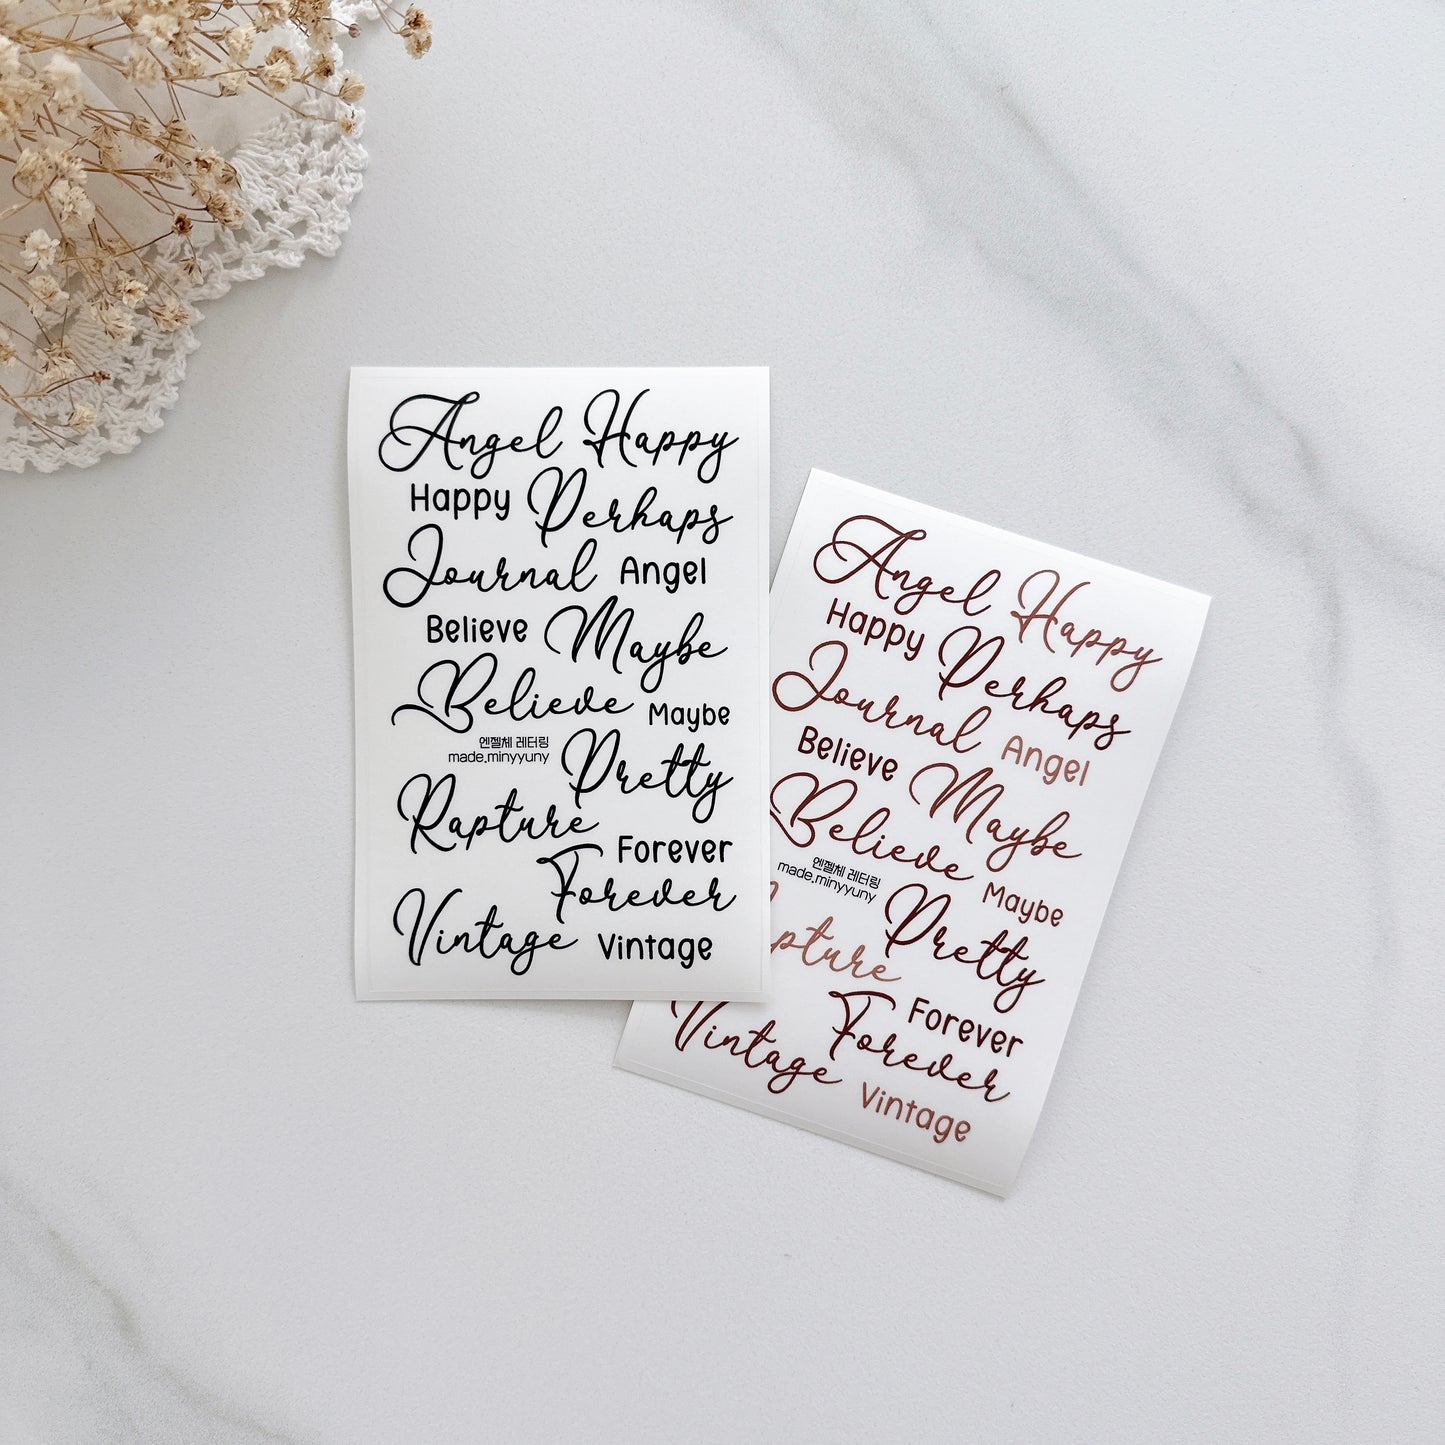 Angel Happy
Happy Perhaps
Journal Angel
Believe Maybe
Believe Maybe
엔젤체 레터링
made.minyyuny
Pretty
Rapture
Forever
Forever
Vintage Vintage
Angel Happy
Happy Perhaps
Journal Angel
Believe Maybe
Believe Maybe
엔젤체 레터링
made.minyyuny
Pretty
pture
Forever
Forever
Vintage Vintage